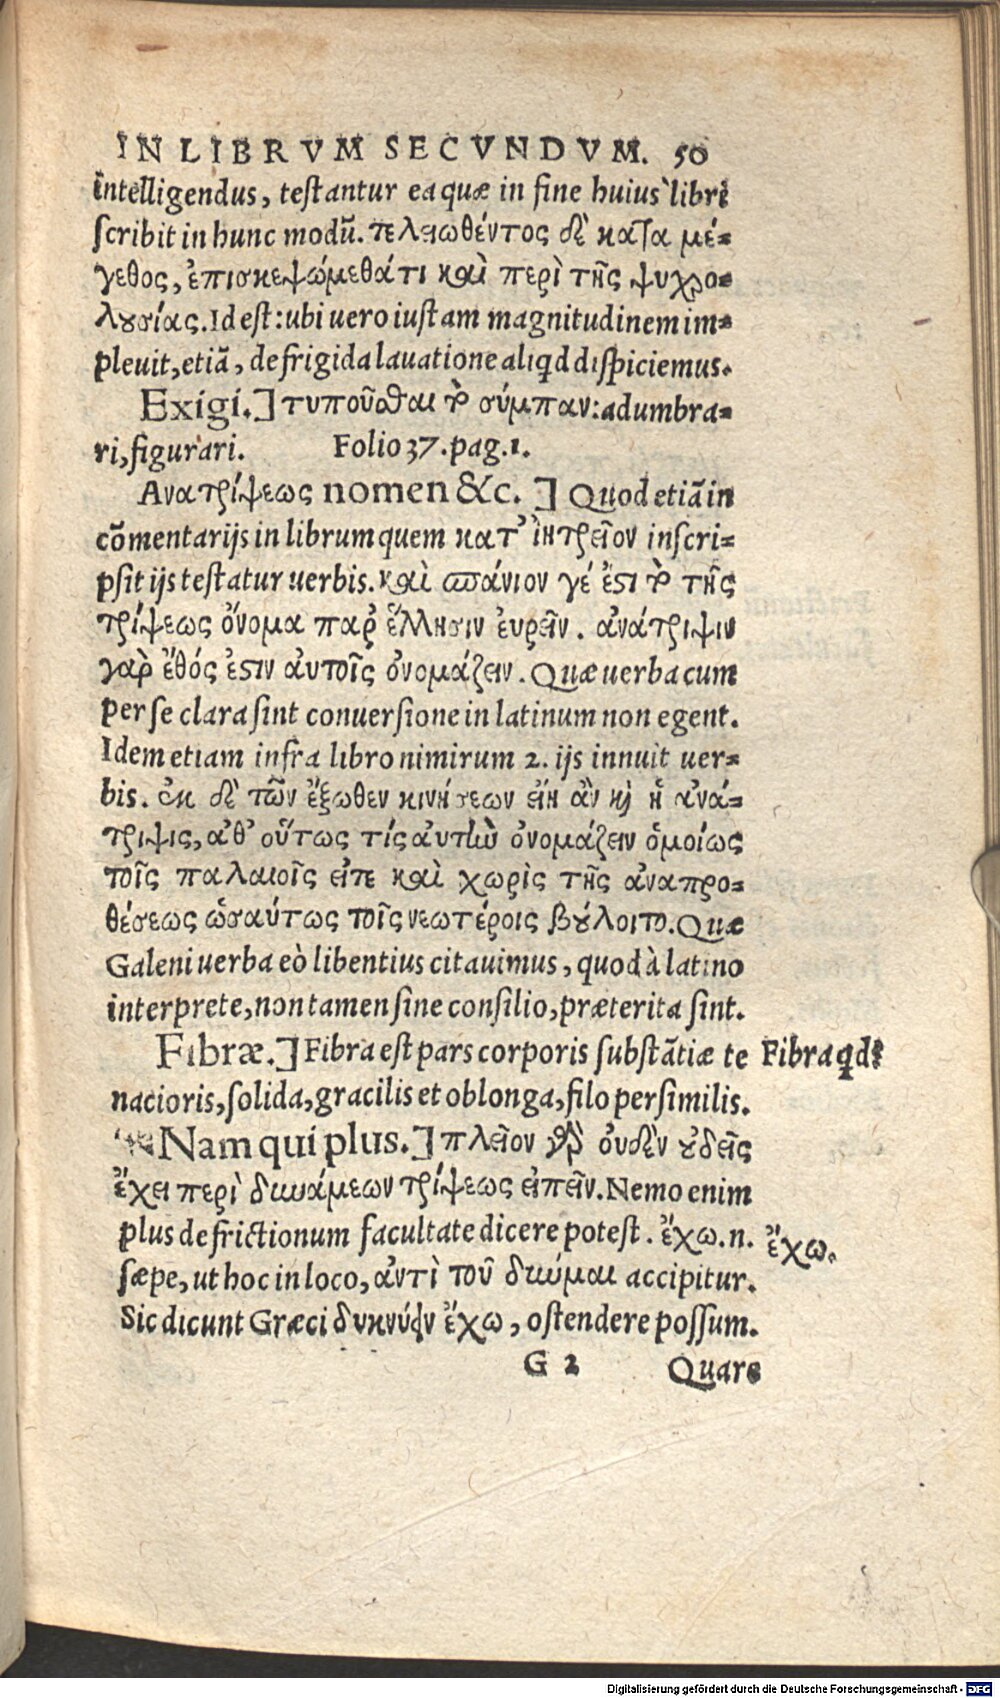 IN LIBRVM SECVNDVM. 50
intelligendus, testantur ea quæ in fine huius libri
scribit in hunc modū. τελειωθέντος δὲ κατα μέ-
γεθος, ἐπισκεψώμεθάτι καὶ περὶ τῆς ψυχρο-
λουσίας. Id est: ubi uero iustam magnitudinem im-
pleuit, etiā, de frigida lauatione aliqd dispiciemus.
Exigi.] τυποῦσθαι τὸ σύμπαν: adumbra-
ri, figurari. Folio 37. pag. 1.
Ανατρίψεως nomen &c. ] Quod etiā in
cōmentarijs in librum quem κατ' ἰητρεῖον inscri-
psit ijs testatur uerbis. καὶ σπάνιον γέ ἐστι τὸ τῆς
τρίψεως ὄνομα παρ' ἕλλησιν ἑυρεῖν. ανάτριψιν
γαρ ἔθός ἐστιν ἀυτοῖς ὀνομάζειν. Quæ uerba cum
per se clara sint conuersione in latinum non egent.
Idem etiam infra libro nimirum 2. ijs innuit uer-
bis. ἐκ δὲ τῶν ἔξωθεν κινήσεων εἴη ἂν καὶ ἡ ἀνά-
τριψις, ἀθ' οὕτως τίς ἀυτὴν ὀνομάζειν ὁμοίως
τοῖς παλαιοῖς εἴτε καὶ χωρὶς τῆς ἀναπρο-
θέσεως ὡσαύτως τοῖς νεωτέροις βούλοιτο. Quæ
Galeni uerba eò libentius citauimus, quod à latino
interprete, non tamen sine consilio, præterita sint.
Fibræ.] Fibra est pars corporis substātiæ te
Fibra qd:
nacioris, solida, gracilis et oblonga, filo persimilis.
Nam qui plus.] πλεῖον γὰρ ουδὲν ουδεῖς
ἔχει περὶ δυνάμεων τρίψεως ειπεῖν. Nemo enim
plus de frictionum facultate dicere potest. ἔχω. n.
ἔχω.
sæpe, ut hoc in loco, ἀντὶ τοῦ δύναμαι accipitur.
Sic dicunt Græci δυκνύειν ἔχω, ostendere possum.
G 2 Quare
Digitalisierung gefördert durch die Deutsche Forschungsgemeinschaft - DFG